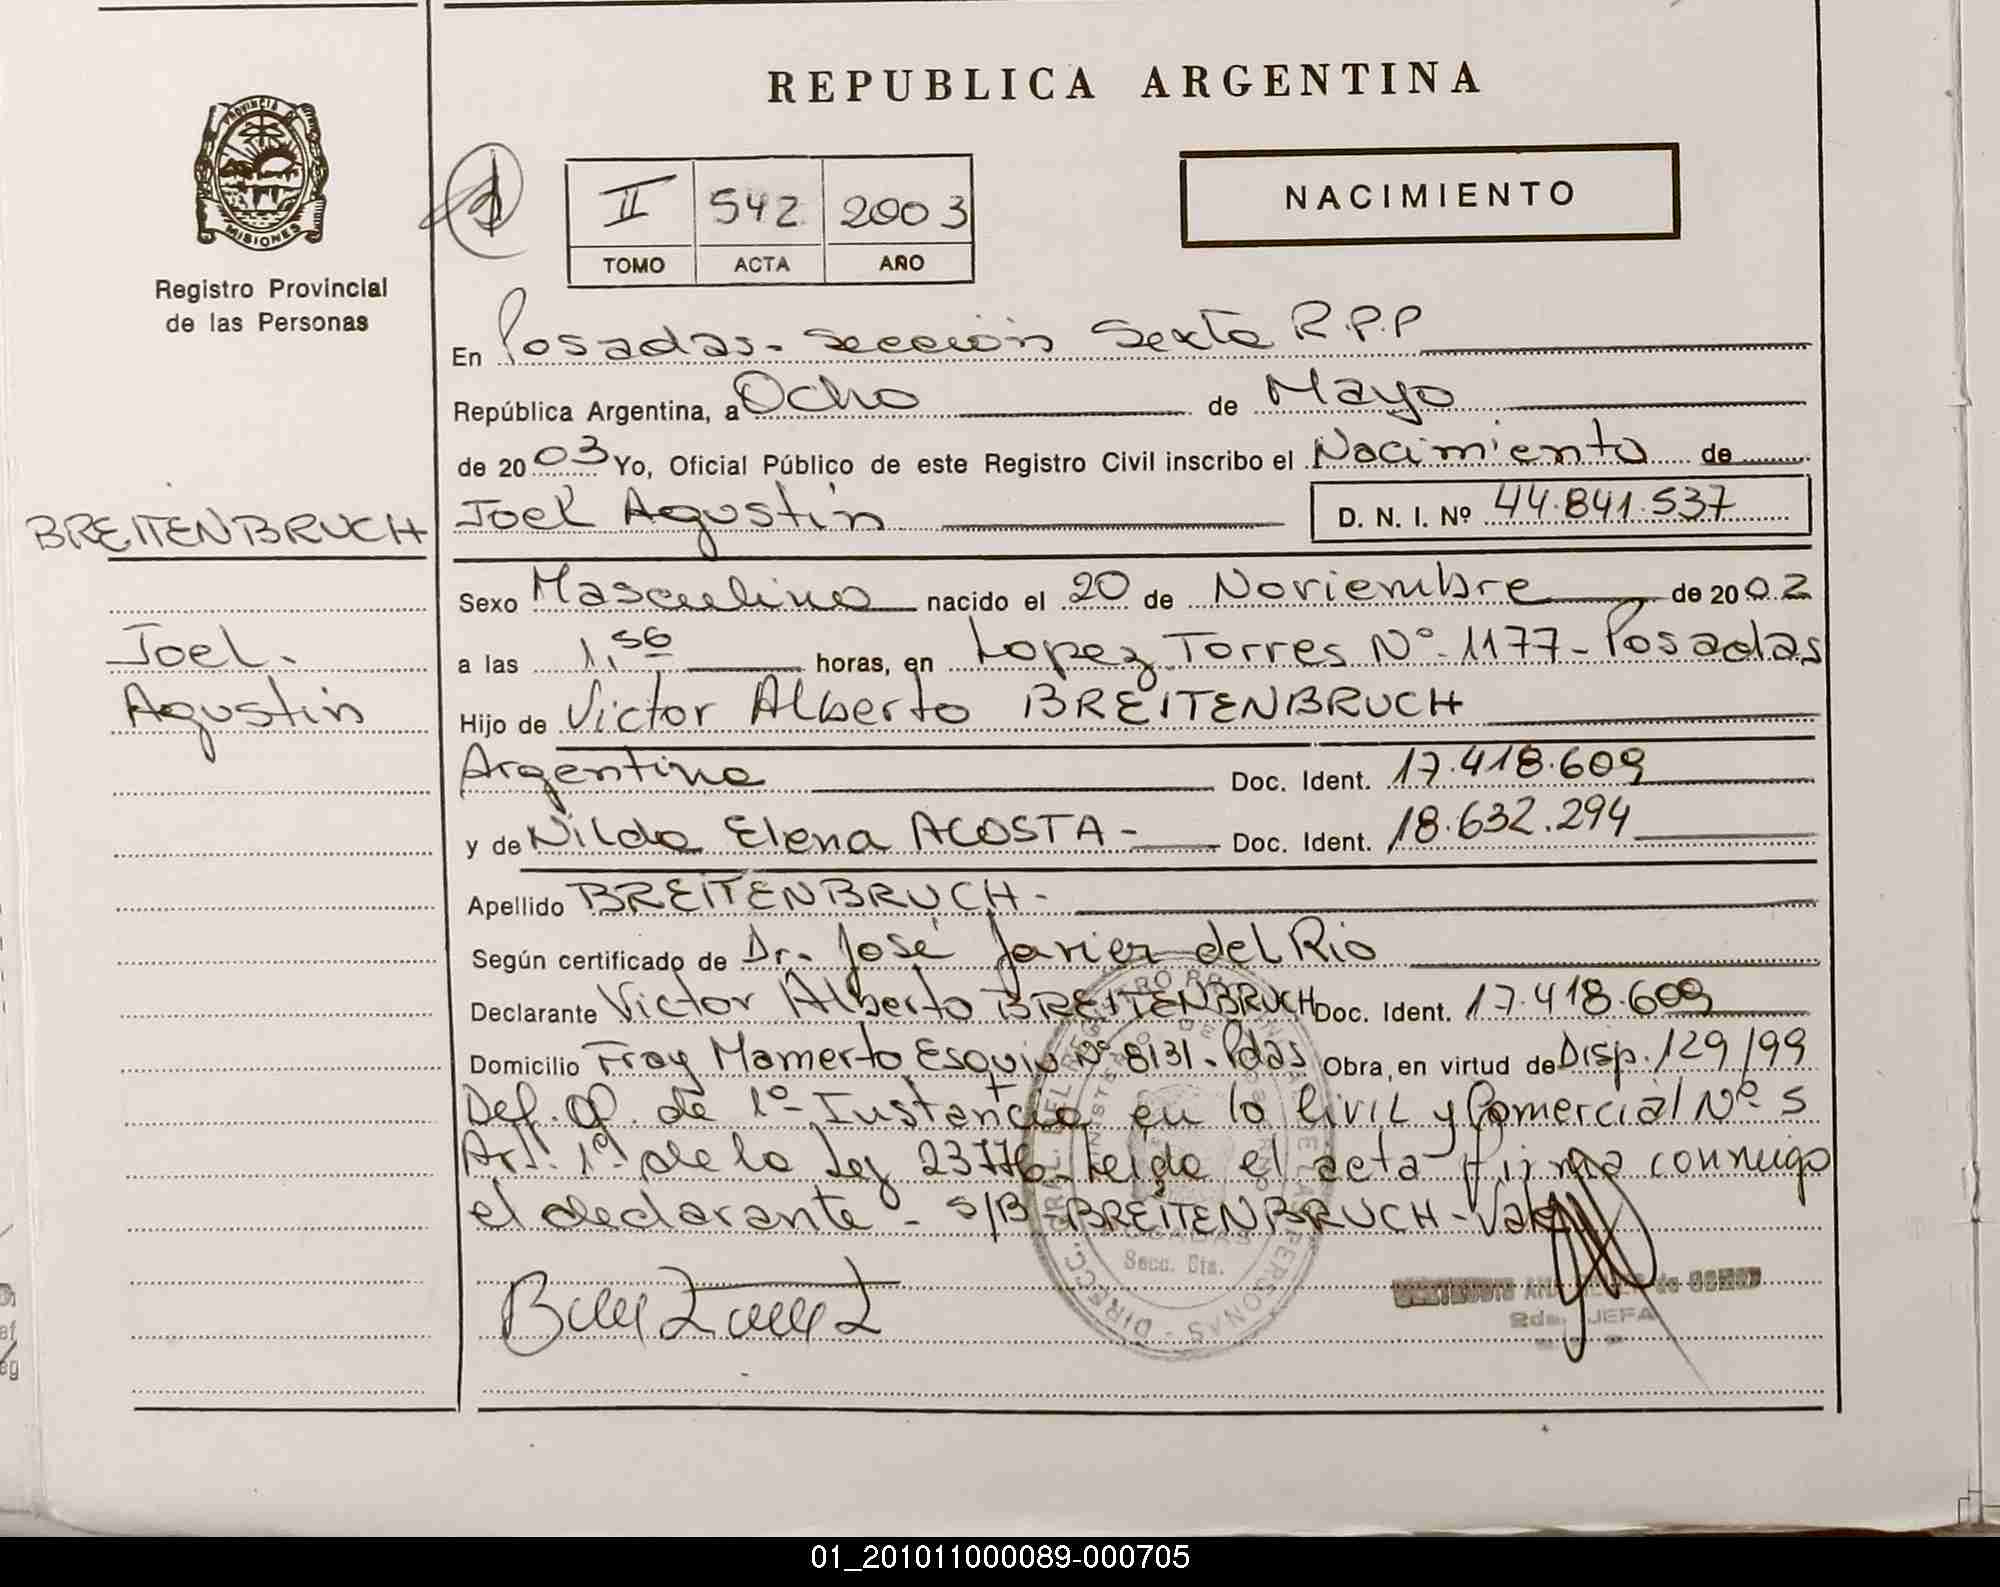 REPUBLICA ARGENTINA
PROVINCIA DE
MISIONES
Registro Provincial
de las Personas
II 542 2003
TOMO ACTA AÑO
NACIMIENTO
En Posadas - Sección Sexta R.P.P
República Argentina, a Ocho de Mayo
de 2003 Yo, Oficial Público de este Registro Civil inscribo el Nacimiento de
BREITENBRUCH
Joel Agustín D. N. I. Nº 44.841.537
Sexo Masculino nacido el 20 de Noviembre de 2002
Joel.
a las 1,50 horas, en Lopez Torres Nº 1177 - Posadas
Agustín
Hijo de Victor Alberto BREITENBRUCH
Argentino Doc. Ident. 17.418.609
y de Nilda Elena ACOSTA - Doc. Ident. 18.632.294
Apellido BREITENBRUCH -
Según certificado de Dr. José Javier del Rio
Declarante Victor Alberto BREITENBRUCH Doc. Ident. 17.418.609
Domicilio Fray Mamerto Esquiu Nº 8131 - Pdas Obra, en virtud de Disp. 129/99
Def. Of. de 1º Instancia en lo Civil y Comercial Nº 5
Art. 1º de la Ley 23776 - Leída el acta firma conmigo
el declarante - S/B - BREITENBRUCH - Vale
Secc. 6ta.
2da. JEFA
01_201011000089-000705